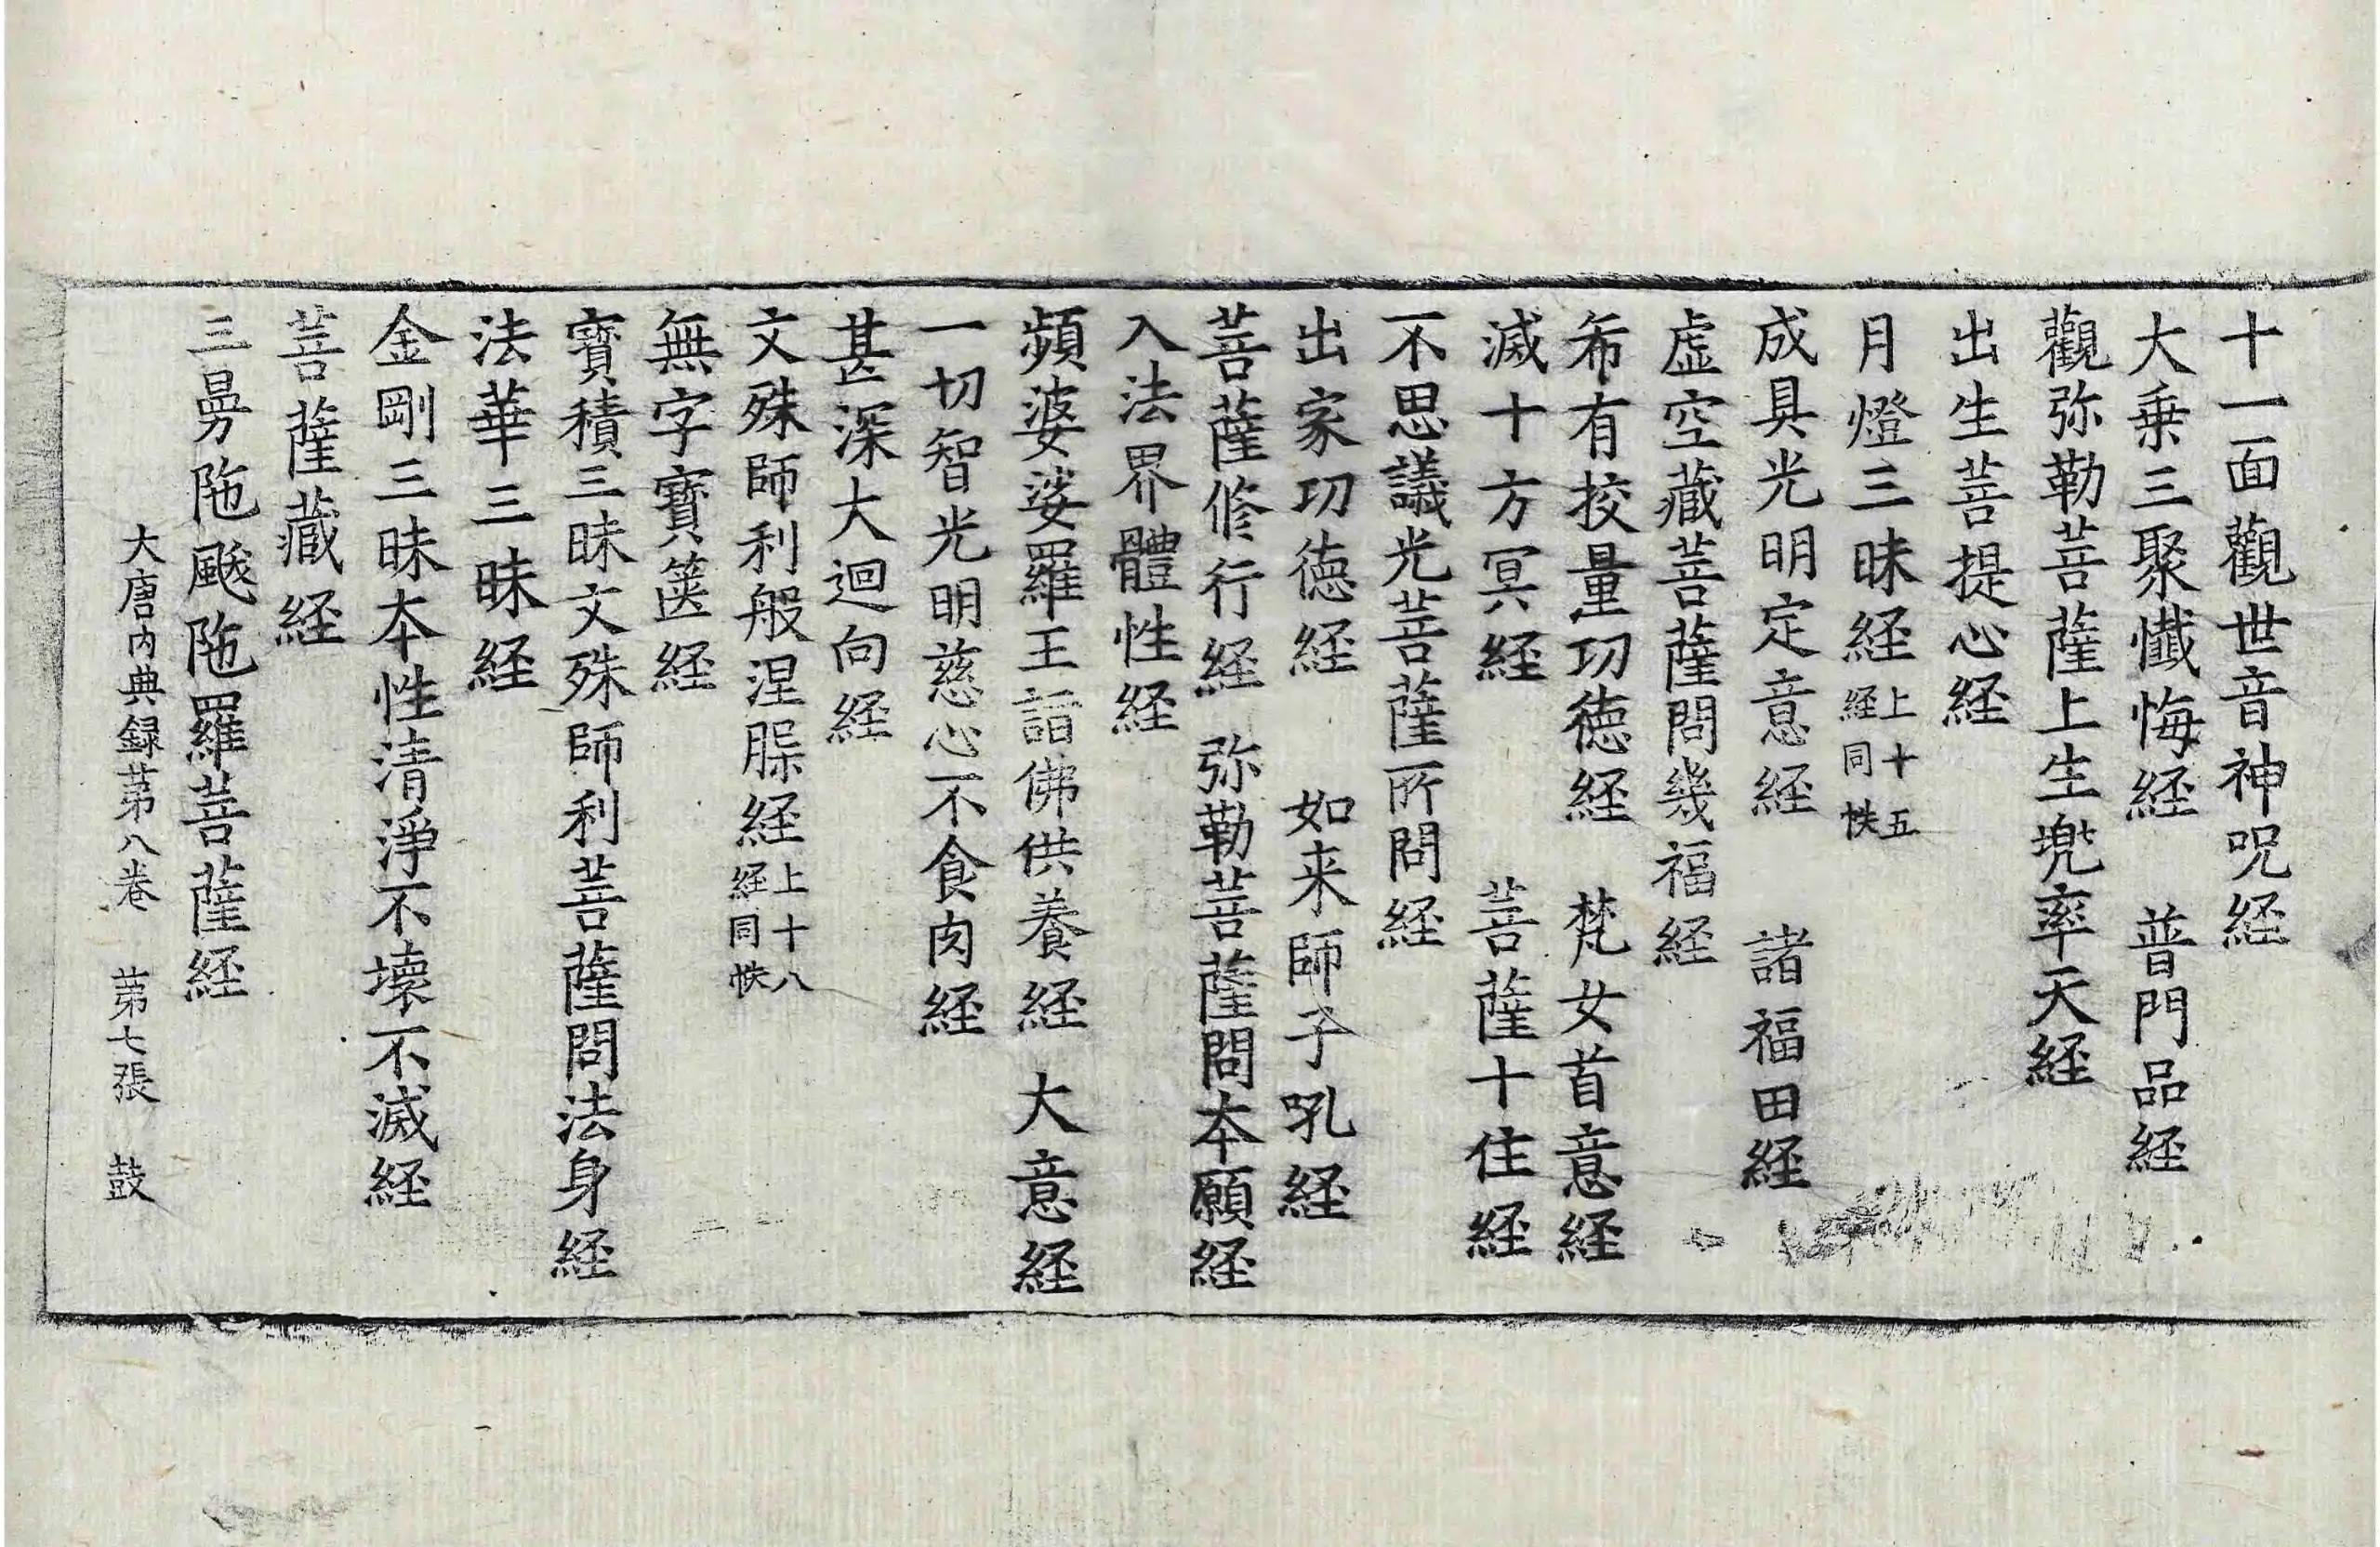 十一面觀世音神呪経
大乗三聚懺悔経　普門品経
觀弥勒菩薩上生兜率天経
出生菩提心経
月燈三昧経上十五経同帙
成具光明定意経　諸福田経
虚空藏菩薩問幾福経
希有挍量功徳経　梵女首意経
滅十方冥経　菩薩十住経
不思議光菩薩所問経
出家功徳経　如来師子吼経
菩薩修行経　弥勒菩薩問本願経
入法界體性経
頻婆娑羅王詣佛供養経　大意経
一切智光明慈心不食肉経
甚深大迴向経
文殊師利般涅槃経上十八経同帙
無字寳篋経
寳積三昧文殊師利菩薩問法身経
法華三昧経
金剛三昧本性清淨不壊不滅経
菩薩藏経
三曼陁颰陁羅菩薩経
大唐内典録苐八卷　苐七張　鼓